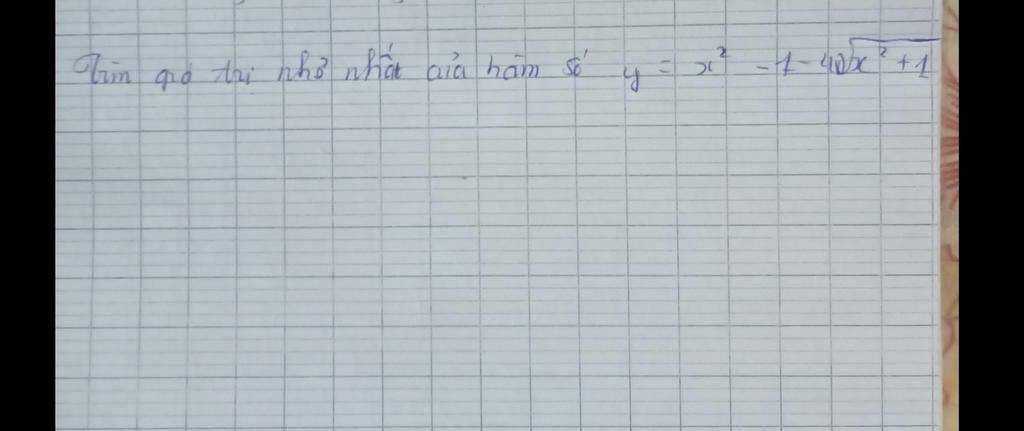 Tìm giá trị nhở nhất của hàm số y = x² - 1 - 40√x² + 1